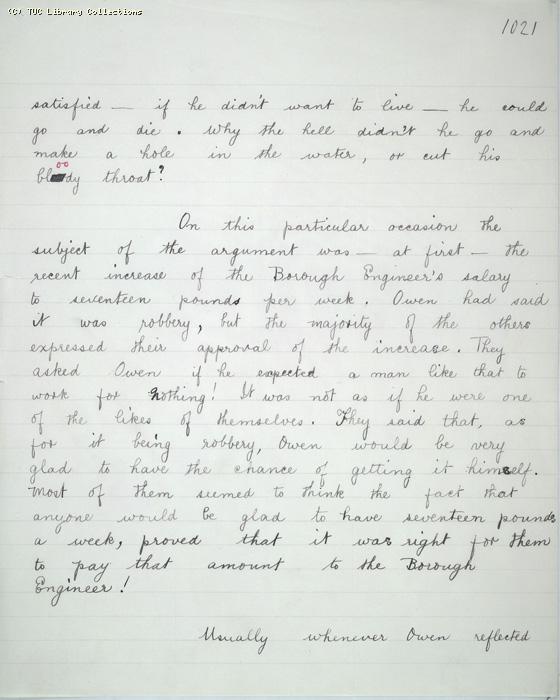 (C) TUC Library Collections
1021
satisfied — if he didn't want to live — he could
go and die. Why the hell didn't he go and
make a hole in the water, or cut his
bloody throat?
On this particular occasion the
subject of the argument was — at first — the
recent increase of the Borough Engineer's salary
to seventeen pounds per week. Owen had said
it was robbery, but the majority of the others
expressed their approval of the increase. They
asked Owen if he expected a man like that to
work for nothing! It was not as if he were one
of the likes of themselves. They said that, as
for it being robbery, Owen would be very
glad to have the chance of getting it himself.
Most of them seemed to think the fact that
anyone would be glad to have seventeen pounds
a week, proved that it was right for them
to pay that amount to the Borough
Engineer!
Usually whenever Owen reflected